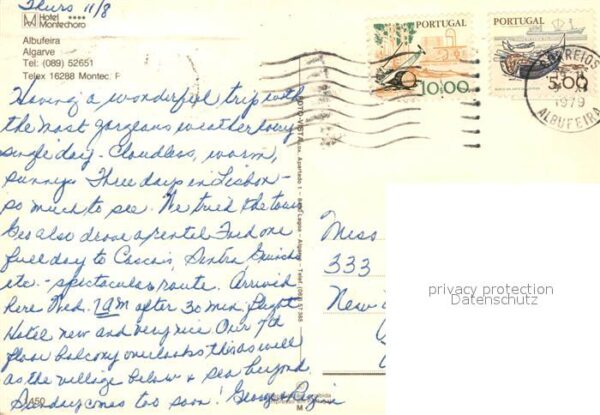 Thurs 11/8
M Hotel ****
Montechoro
Albufeira
Algarve
Tel: (089) 52651
Telex 16288 Montec. P
Having a wonderful trip with
the most gorgeous weather every
single day - Cloudless, warm,
sunny. Three days in Lisbon -
so much to see. We tried the tours
Geo also drove a rental Ford one
full day to Cascais, Sintra Guincho
etc. - spectacular route. Arrived
here Wed. 7am after 30 min. flight
Hotel new and very nice Our 7th
floor balcony overlooks this as well
as the village below & sea beyond
Sunday comes too soon! George &
A50
M
PORTUGAL
10.00
PORTUGAL
5.00
CORREIOS
1979
ALBUFEIRA
Miss
333
New
privacy protection
Datenschutz